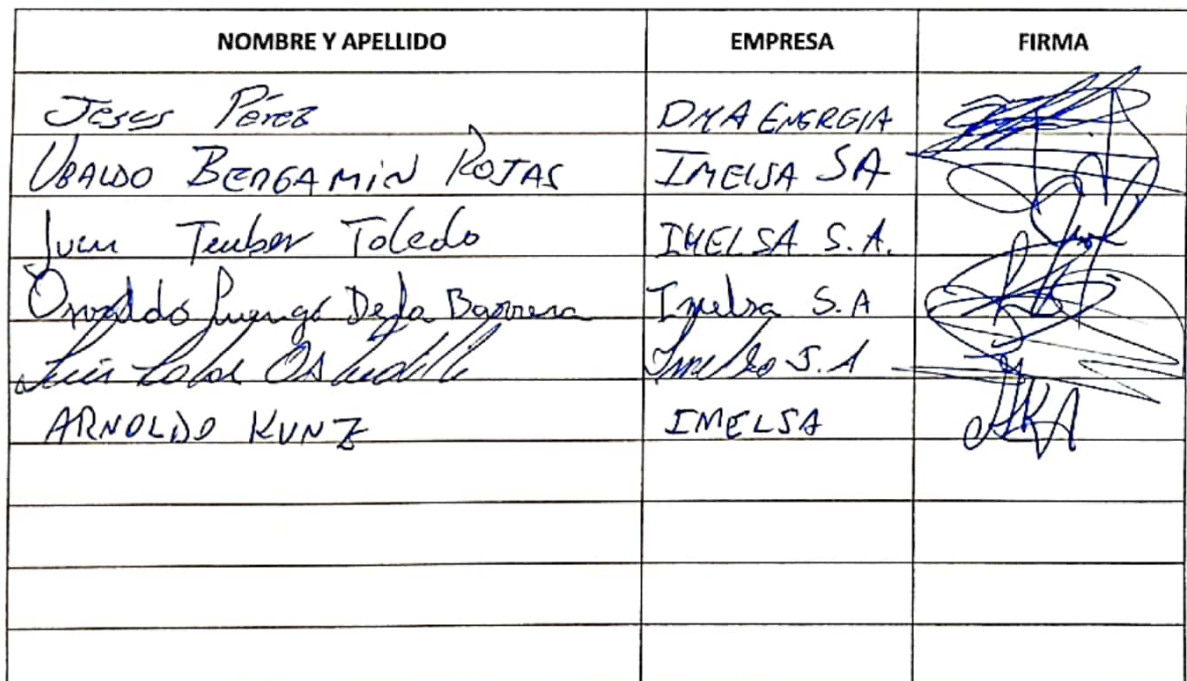 NOMBRE Y APELLIDO EMPRESA FIRMA
Jesus Pérez DMA ENERGIA
UBALDO BERGAMIN ROJAS IMELSA SA
Juan Teuber Toledo IMELSA S.A.
Osvaldo Luengo De la Barrera Imelsa S.A
Luis S.A
ARNOLDO KUNZ IMELSA